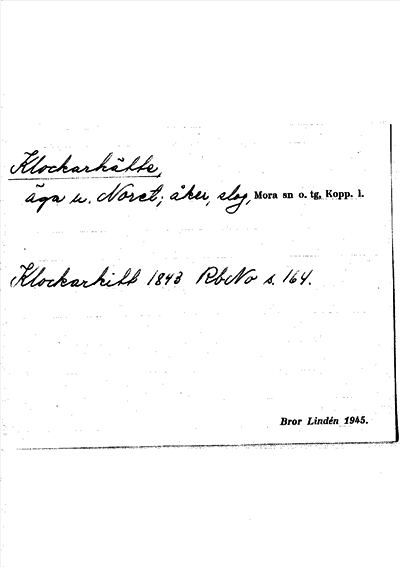 Klockarhätte,
äga u. Noret; åker, slog, Mora sn o. tg, Kopp. l.
Klockarhitt 1843 RbNo s. 164.
Bror Lindén 1945.